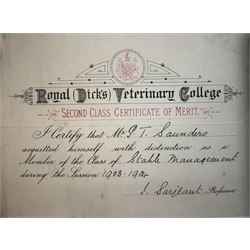 Royal (Dick's) Veterinary College
SECOND CLASS CERTIFICATE OF MERIT.
I Certify that Mr P. T. Saunders
acquitted himself with distinction as a
Member of the Class of Stable Management
during the Session 1903-1904
Professor